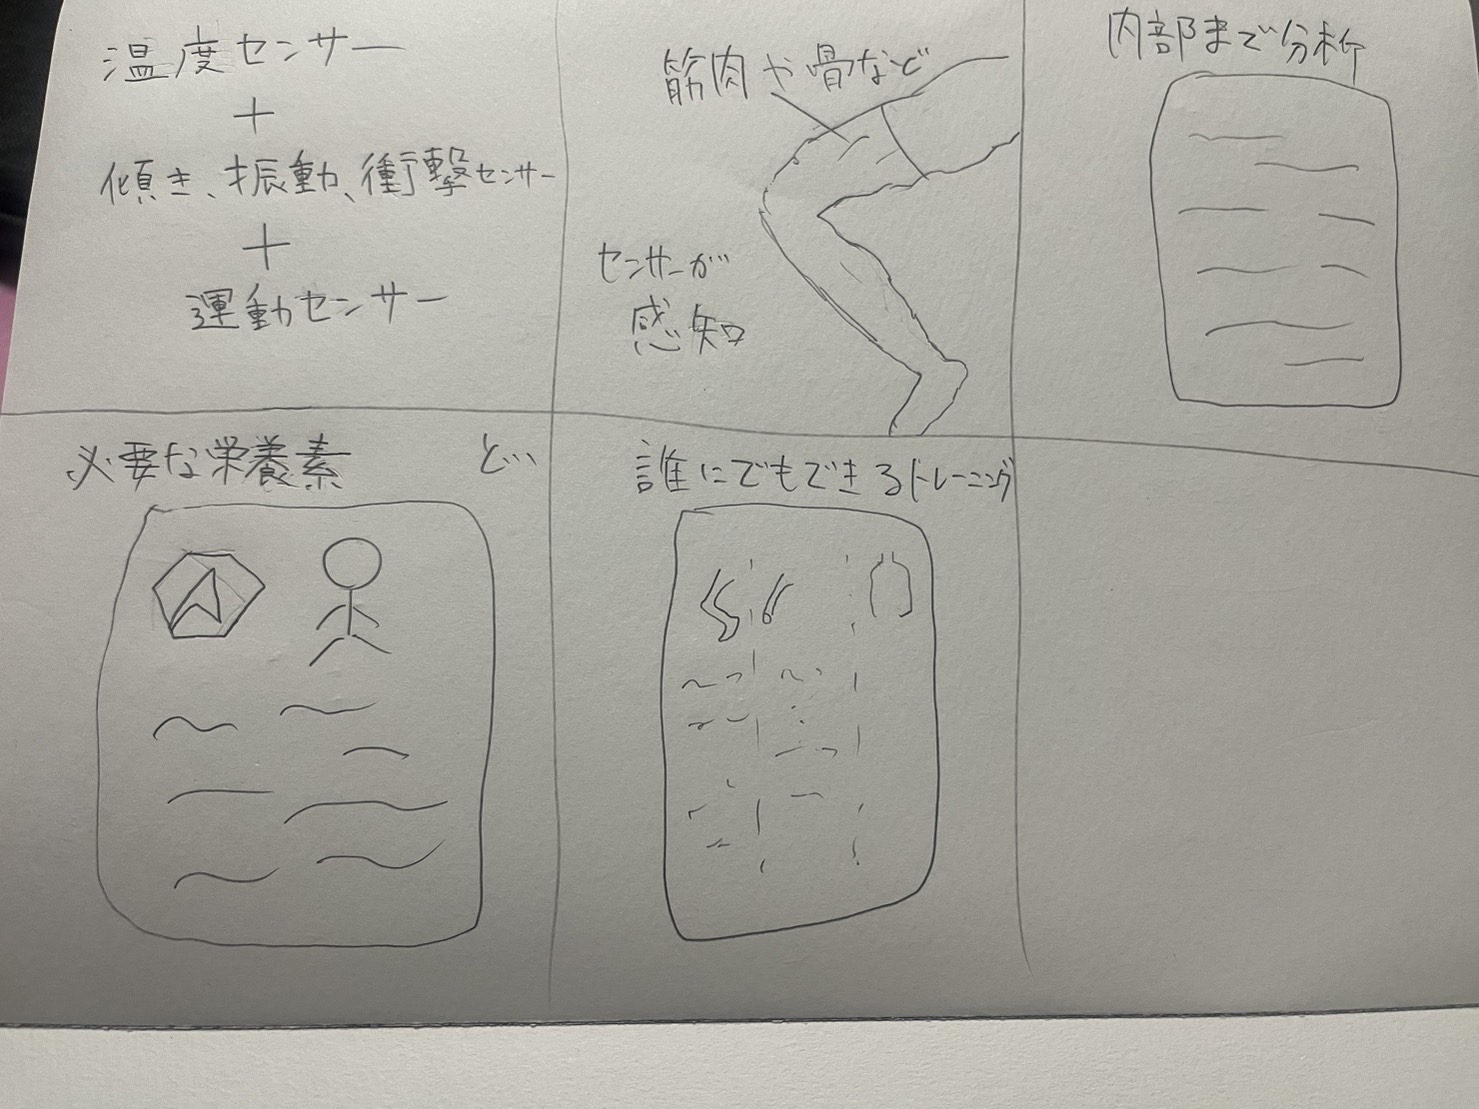 温度センサー
+
傾き、振動、衝撃センサー
+
運動センサー
筋肉や骨など
センサーが
感知
内部まで分析
必要な栄養素 と…
A
誰にでもできるトレーニング